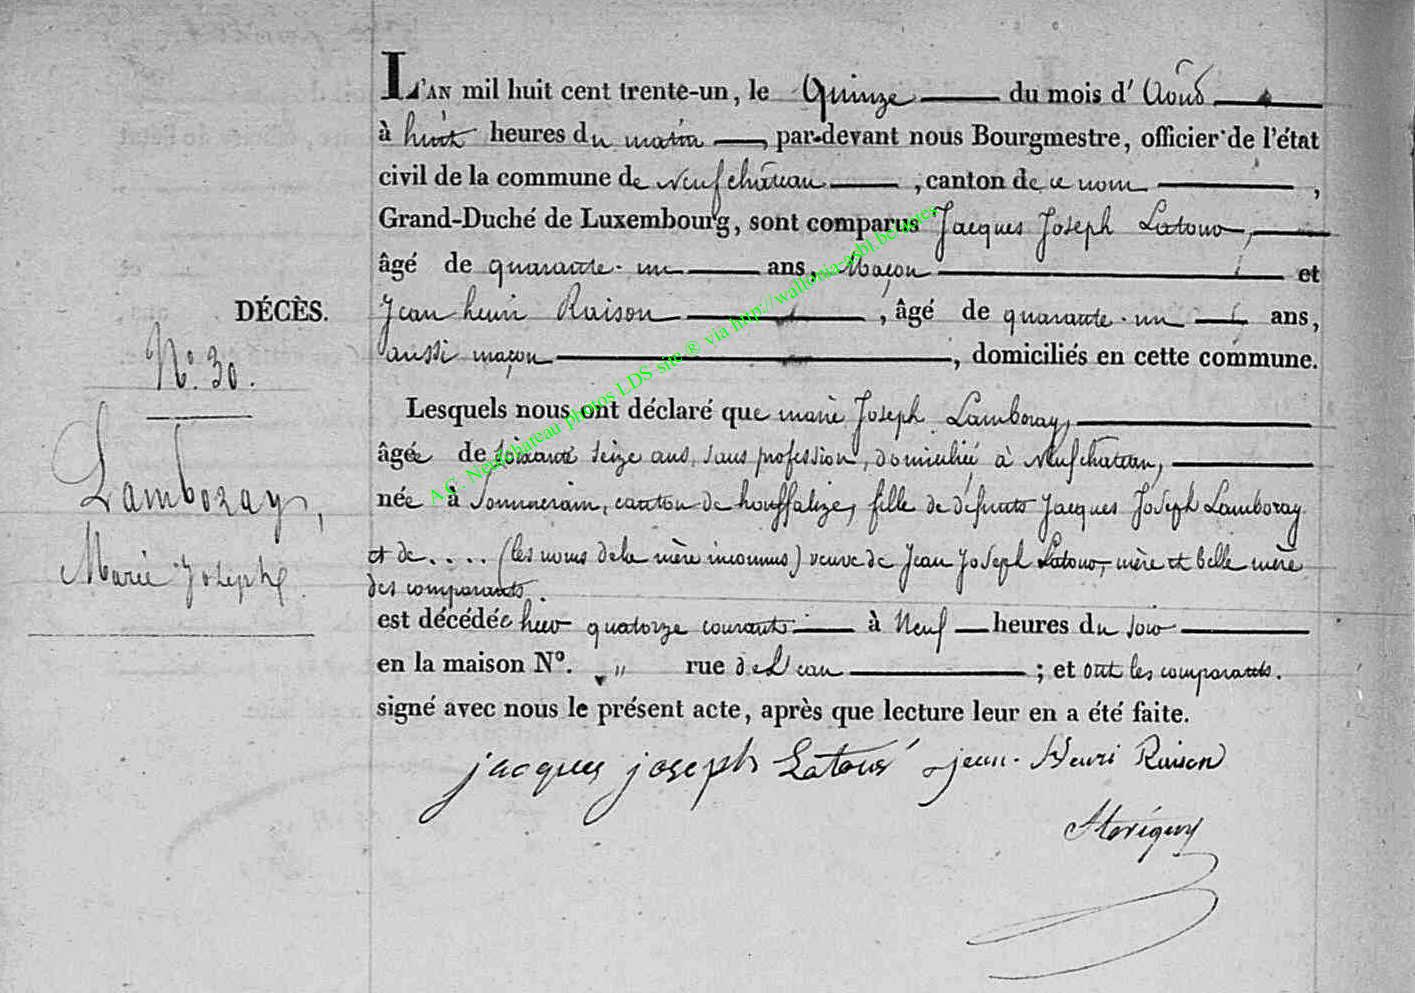 L'AN mil huit cent trente-un, le Quinze du mois d'Août
à huit heures du matin, par-devant nous Bourgmestre, officier de l'état
civil de la commune de Neufchâteau, canton de ce nom,
Grand-Duché de Luxembourg, sont comparus Jacques Joseph Latour,
âgé de quarante-un ans, Maçon et
Jean henri Raison, âgé de quarante-un ans,
aussi maçon, domiciliés en cette commune.
DÉCÈS.
N.º 30.
Lamboray,
Marie Josephe.
Lesquels nous ont déclaré que marie Joseph Lamboray,
âgée de soixante seize ans, sans profession, domiciliée à Neufchateau,
née à Sommerain, canton de houffalize, fille de défunts Jacques Joseph Lamboray
et de.... (les noms de la mère inconnus) veuve de Jean Joseph Latour, mère et belle mère
des comparants.
est décédée hier quatorze courant à Neuf heures du soir
en la maison Nº. " rue de L'eau ; et ont les comparants.
signé avec nous le présent acte, après que lecture leur en a été faite.
jacques joseph Latour jean-Henri Raison
A.C. Neufchateau photos LDS site ® via http://wallonia-asbl.be/actes